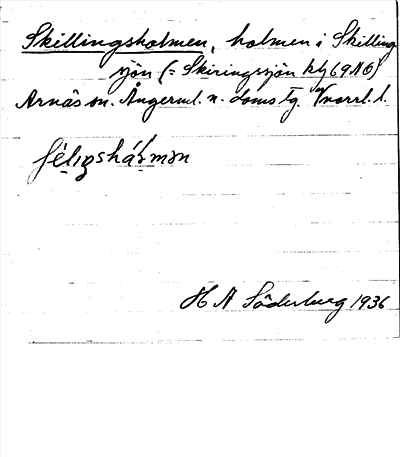 Skillingsholmen, holmen i Skilling
sjön (= Skiringssjön kbl 69 NO)
Arnäs sn. Ångerml. n. doms tg. Vnorrl. l.
H N Söderberg 1936